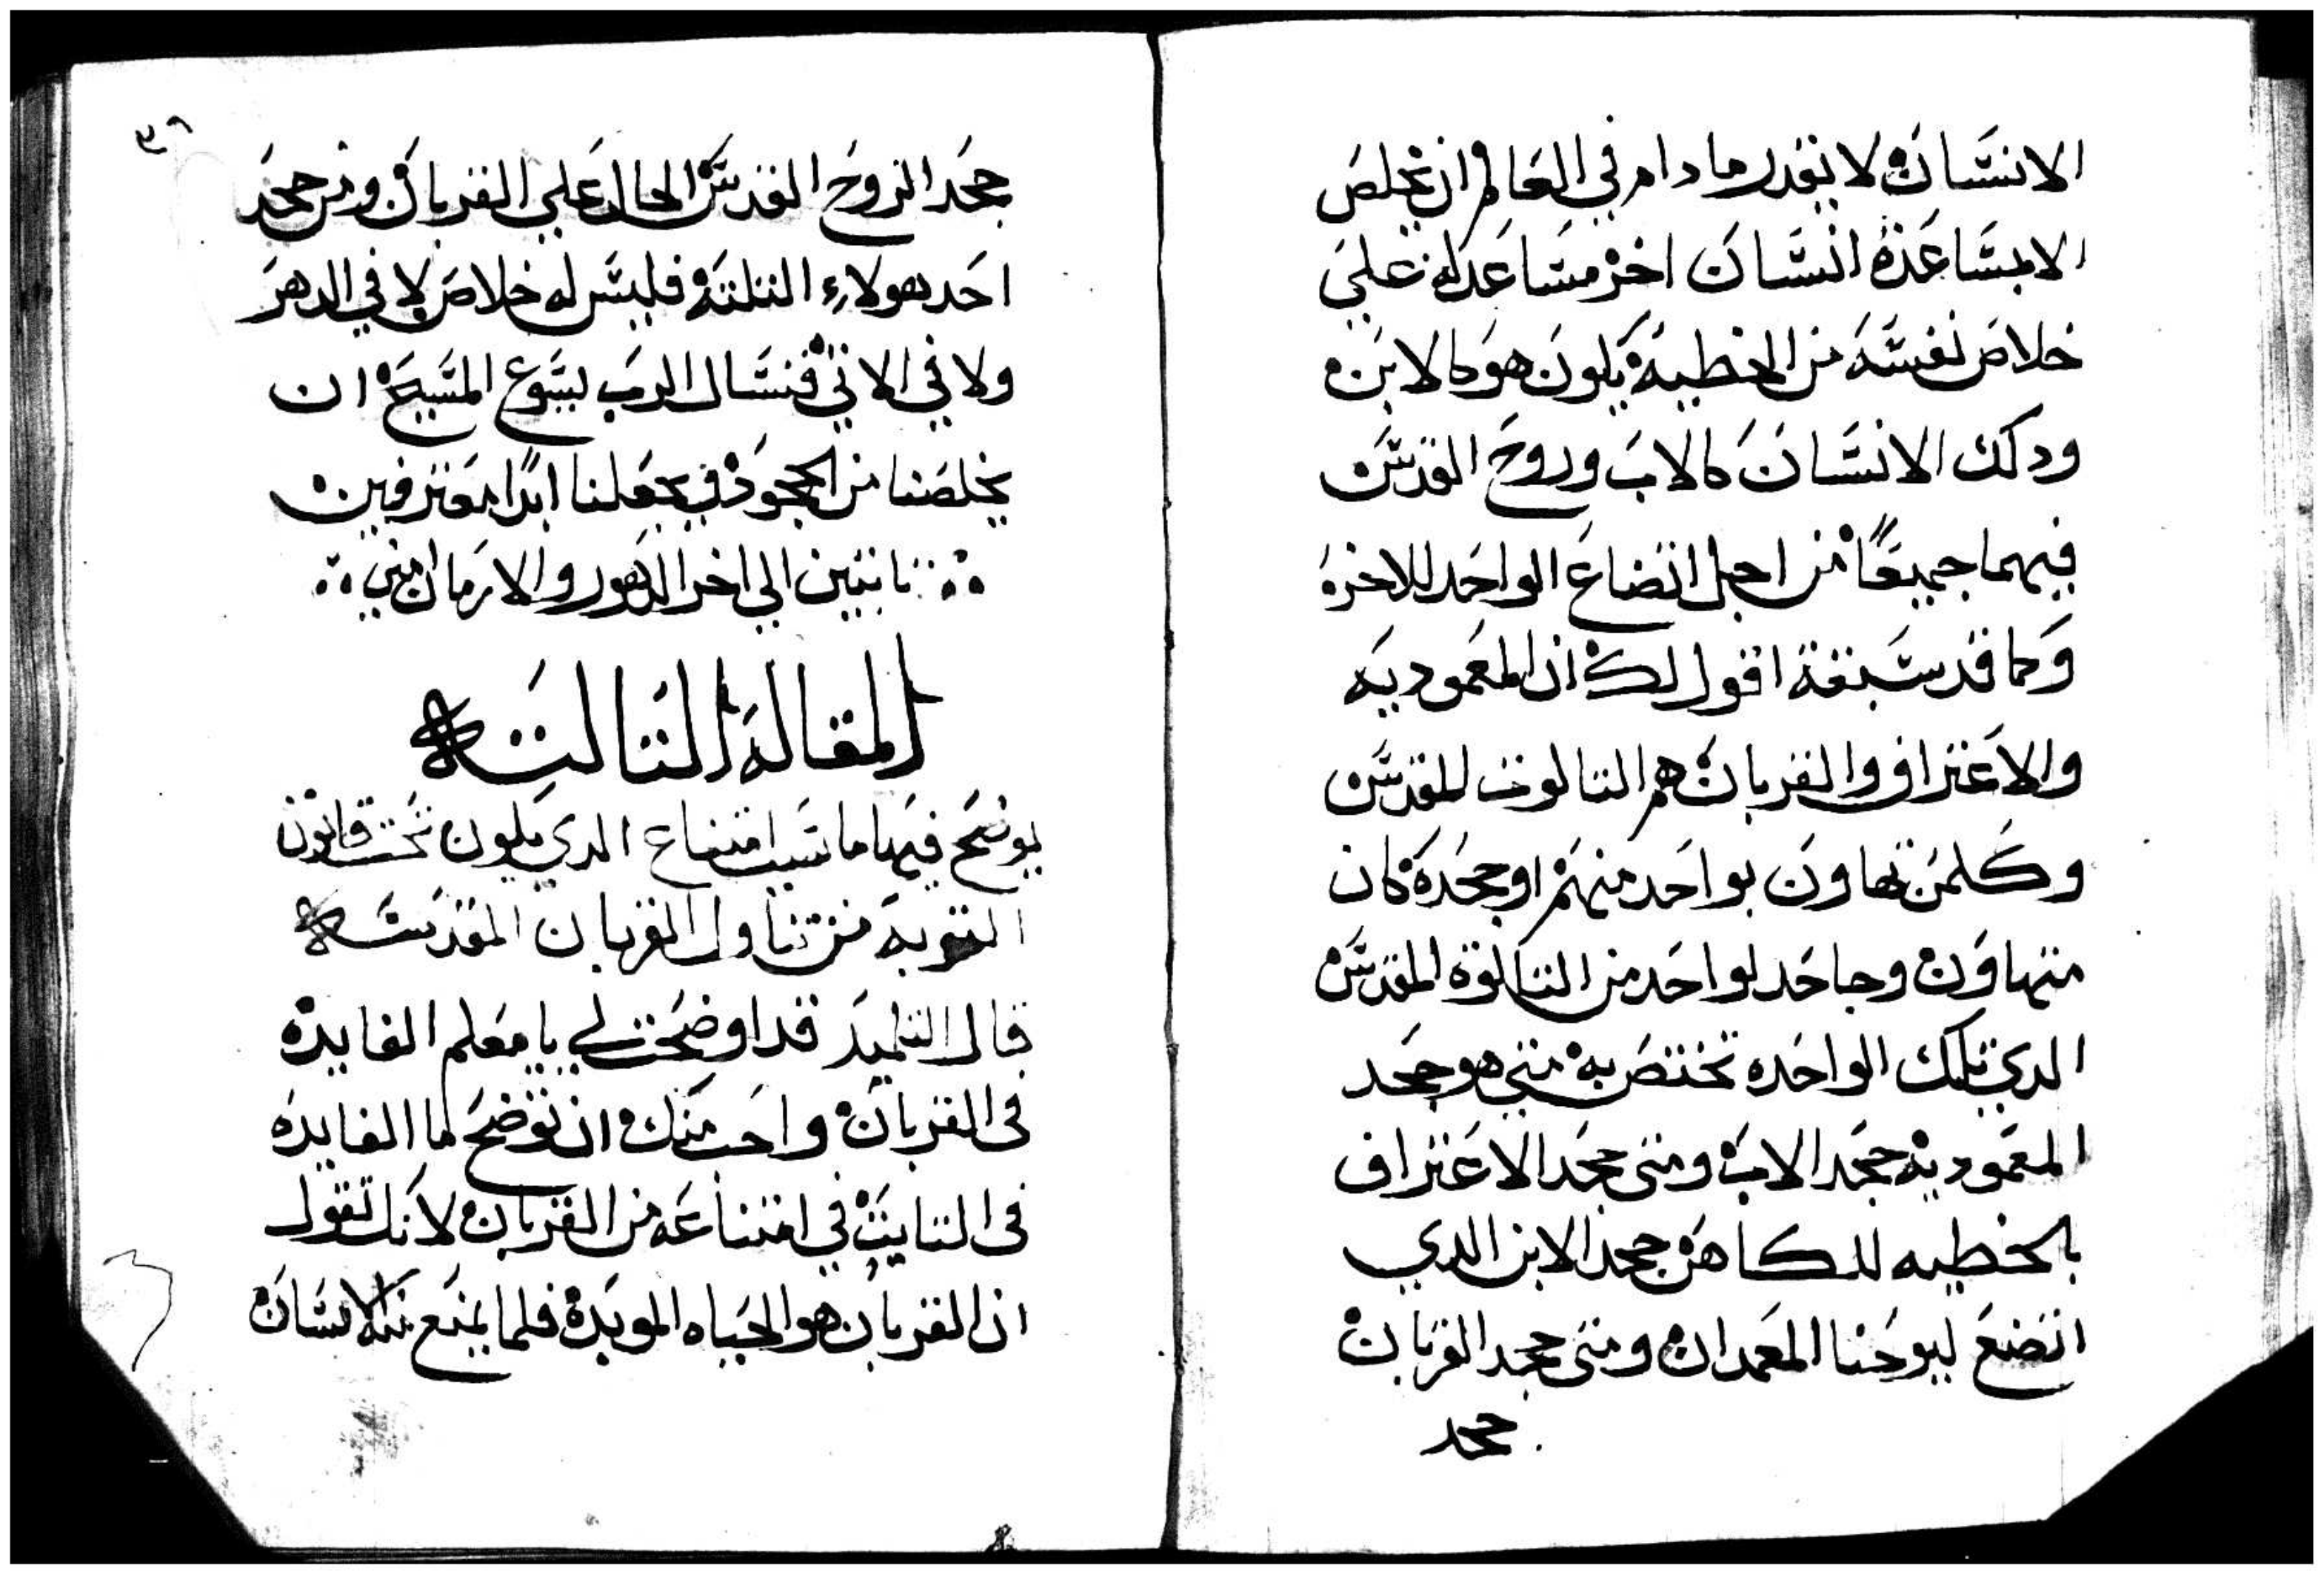 الانسان لا يقدر ما دام في العالم ان يخلص
الا بمساعدة انسان اخر مساعد له على
خلاص نفسه من الخطيه يكون هو كالابن
ودلك الانسان كالاب وروح القدس
فيهما جميعًا من اجل اتضاع الواحد للاخر
وكما قد سبقة اقول لك ان المعموديه
والاعتراف والقربان هم التالوت المقدس
وكلمن تهاون بواحد منهم او جحده كان
متهاون وجاحد لواحد من التالوت المقدس
الدي تلك الواحده تختص به متي هو جحد
المعموديه جحد الاب ومتى جحد الاعتراف
بالخطيه للكاهن جحد الابن الدي
اتضع ليوحنا المعمدان ومتى جحد القربان
جحد
٣٦
جحد الروح القدس الحال علي القربان ومن جحد
احد هولاء التلتة فليس له خلاص لا في الدهر
ولا في الاتي فنسال الرب يسوع المسيح ان
يخلصنا من الجحود في يجعلنا ابدًا معترفين
تابتين الي اخر الدهور والازمان امين
المقالة التالتة
يوضح فيها ما سبب امتناع الدي يكون تحت قانون
التوبة من تناول القربان المقدسة
قال التلميد قد اوضحت لي يا معلم الفايدة
في القربان واحب منك ان توضح لما الفايدة
في التايب في امتناعه من القربان لانك تقول
ان القربان هو الحياه الموبدة فلما يمنع منه الانسان